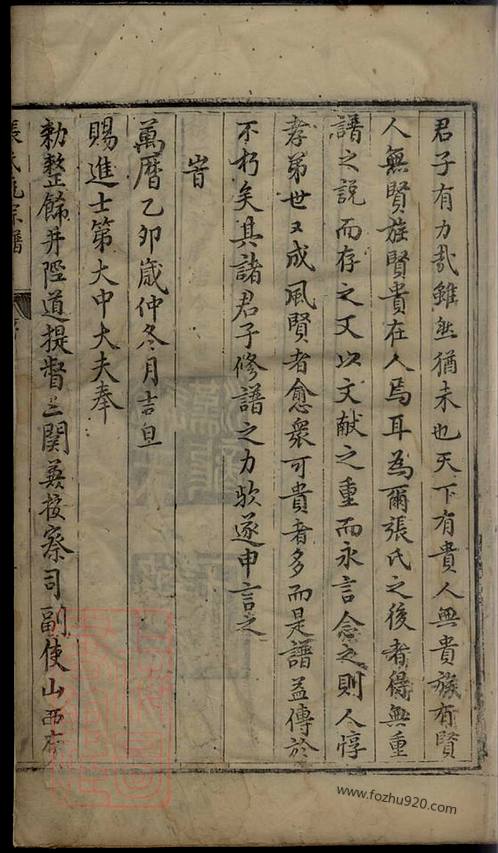 君子有力哉雖然猶未也天下有貴人無貴族有賢
人無賢族賢貴在人焉耳為爾張氏之後者得無重
譜之説而存之又以文献之重而永言念之則人惇
孝弟世又成風賢者愈衆可貴者多而是譜益傳於
不朽矣其諸君子修譜之力欤遂申言之
旹
萬曆乙卯歲仲冬月吉旦
賜進士第大中大夫奉
勑整飭井陘道提督三関兼按察司副使山西布
張氏統宗譜
www.fozhu920.com